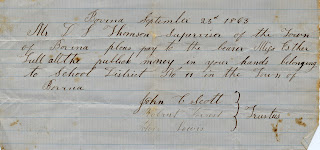 Bovina September 25th 1863
Mr. T. S. Thomson Supervisor of the Town
of Bovina please pay to the bearer Miss Esther
Tull all the publick money in your hands belonging
to School District No 11 in the Town of
Bovina
John C Scott
Trustees